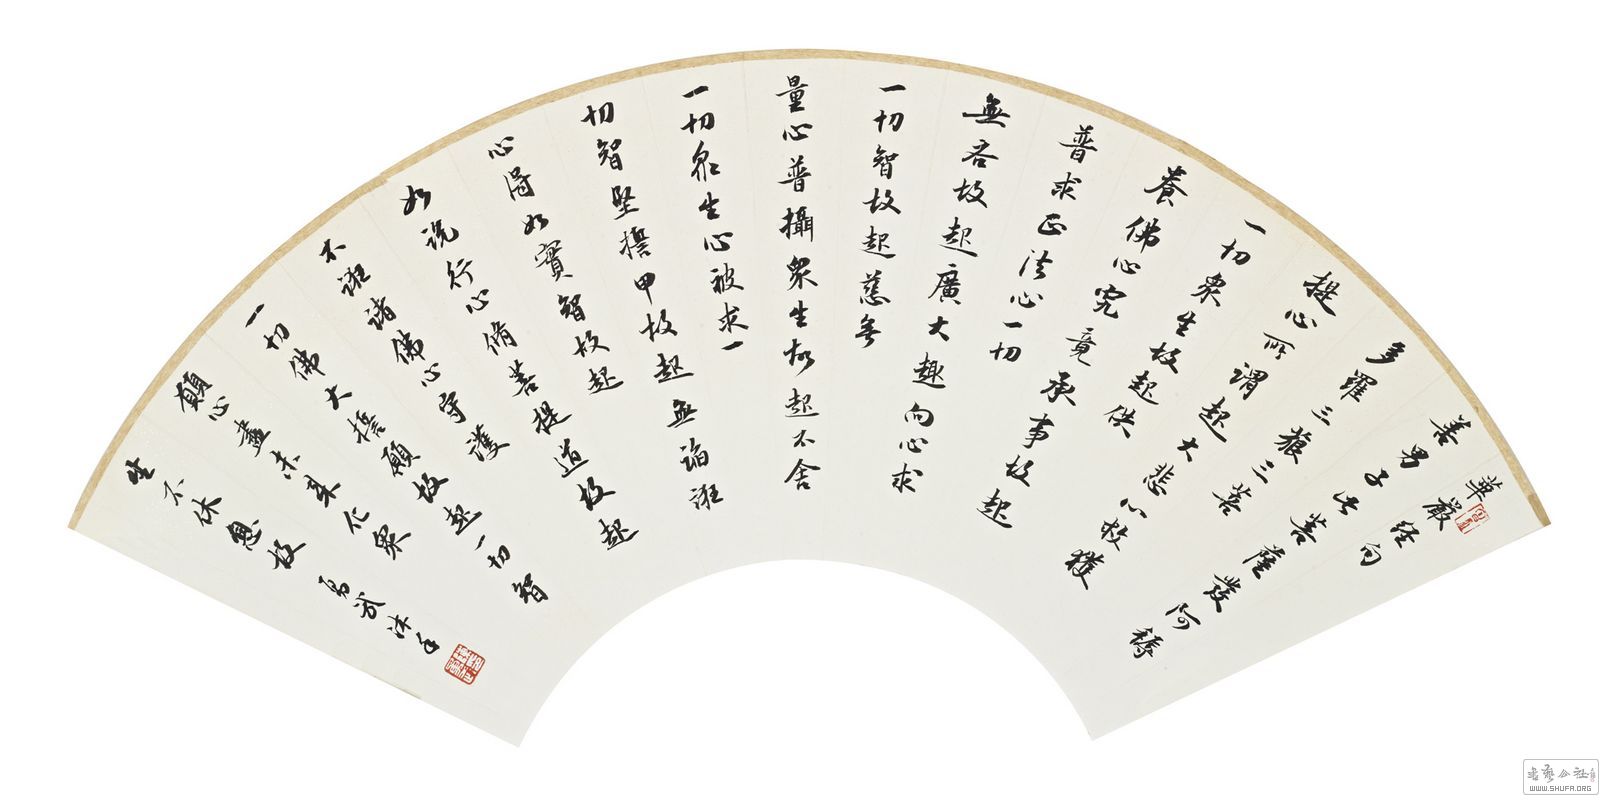 華嚴經句
善男子此菩薩發阿耨
多羅三藐三菩
提心所謂起大悲心救護
一切眾生故起供
養佛心究竟承事故起
普求正法心一切
無吝故起廣大趣向心求
一切智故起慈無
量心普攝眾生故起不舍
一切眾生心被求一
切智堅誓甲故起無諂誑
心得如實智故起
如說行心脩菩提道故起
不誑諸佛心守護
一切佛大誓願故起一切智
願心盡未來化眾
生不休息故
沐手
書藝公社
WWW.SHUFA.ORG